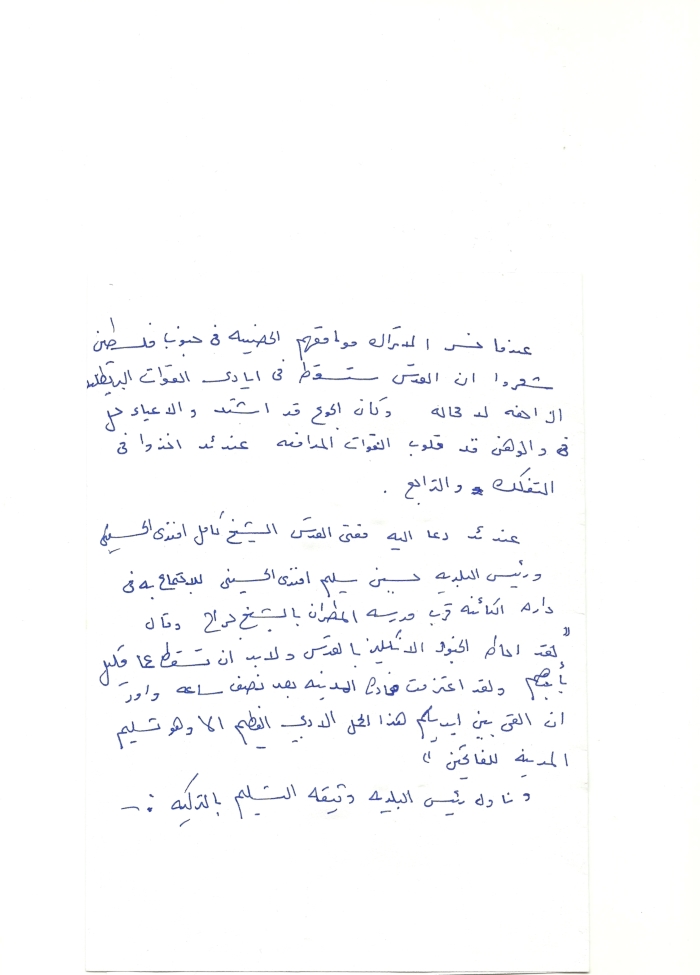 عندما خسر الاتراك مواقعهم الحصينه فى جنوب فلسطين
شعروا ان القدس ستسقط فى ايادى القوات البريطانيه
الزاحفه لا محاله وكان الجوع قد اشتد والاعياء حل
فى والوهن قد قلوب القوات المدافعه عندئد اخذوا فى
التفكك والتراجع .
عندئد دعا اليه مفتى القدس الشيخ كامل افندى الحسينى
ورئيس البلديه حسين سليم افندى الحسينى للاجتماع به فى
داره الكائنه قرب مدرسه المطران بالشيخ جراح وقال
" لقد احاط الجنود الانكليز بالقدس ولابد ان تسقط عما قليل
بأيديهم ولقد اعتزمت مغادرة المدينه بعد نصف ساعه واود
ان القى بين ايديكم هذا الحمل الادبي العظيم الا وهو تسليم
المدينه للفاتحين "
وناول رئيس البلديه وثيقه التسليم بالتركيه :-